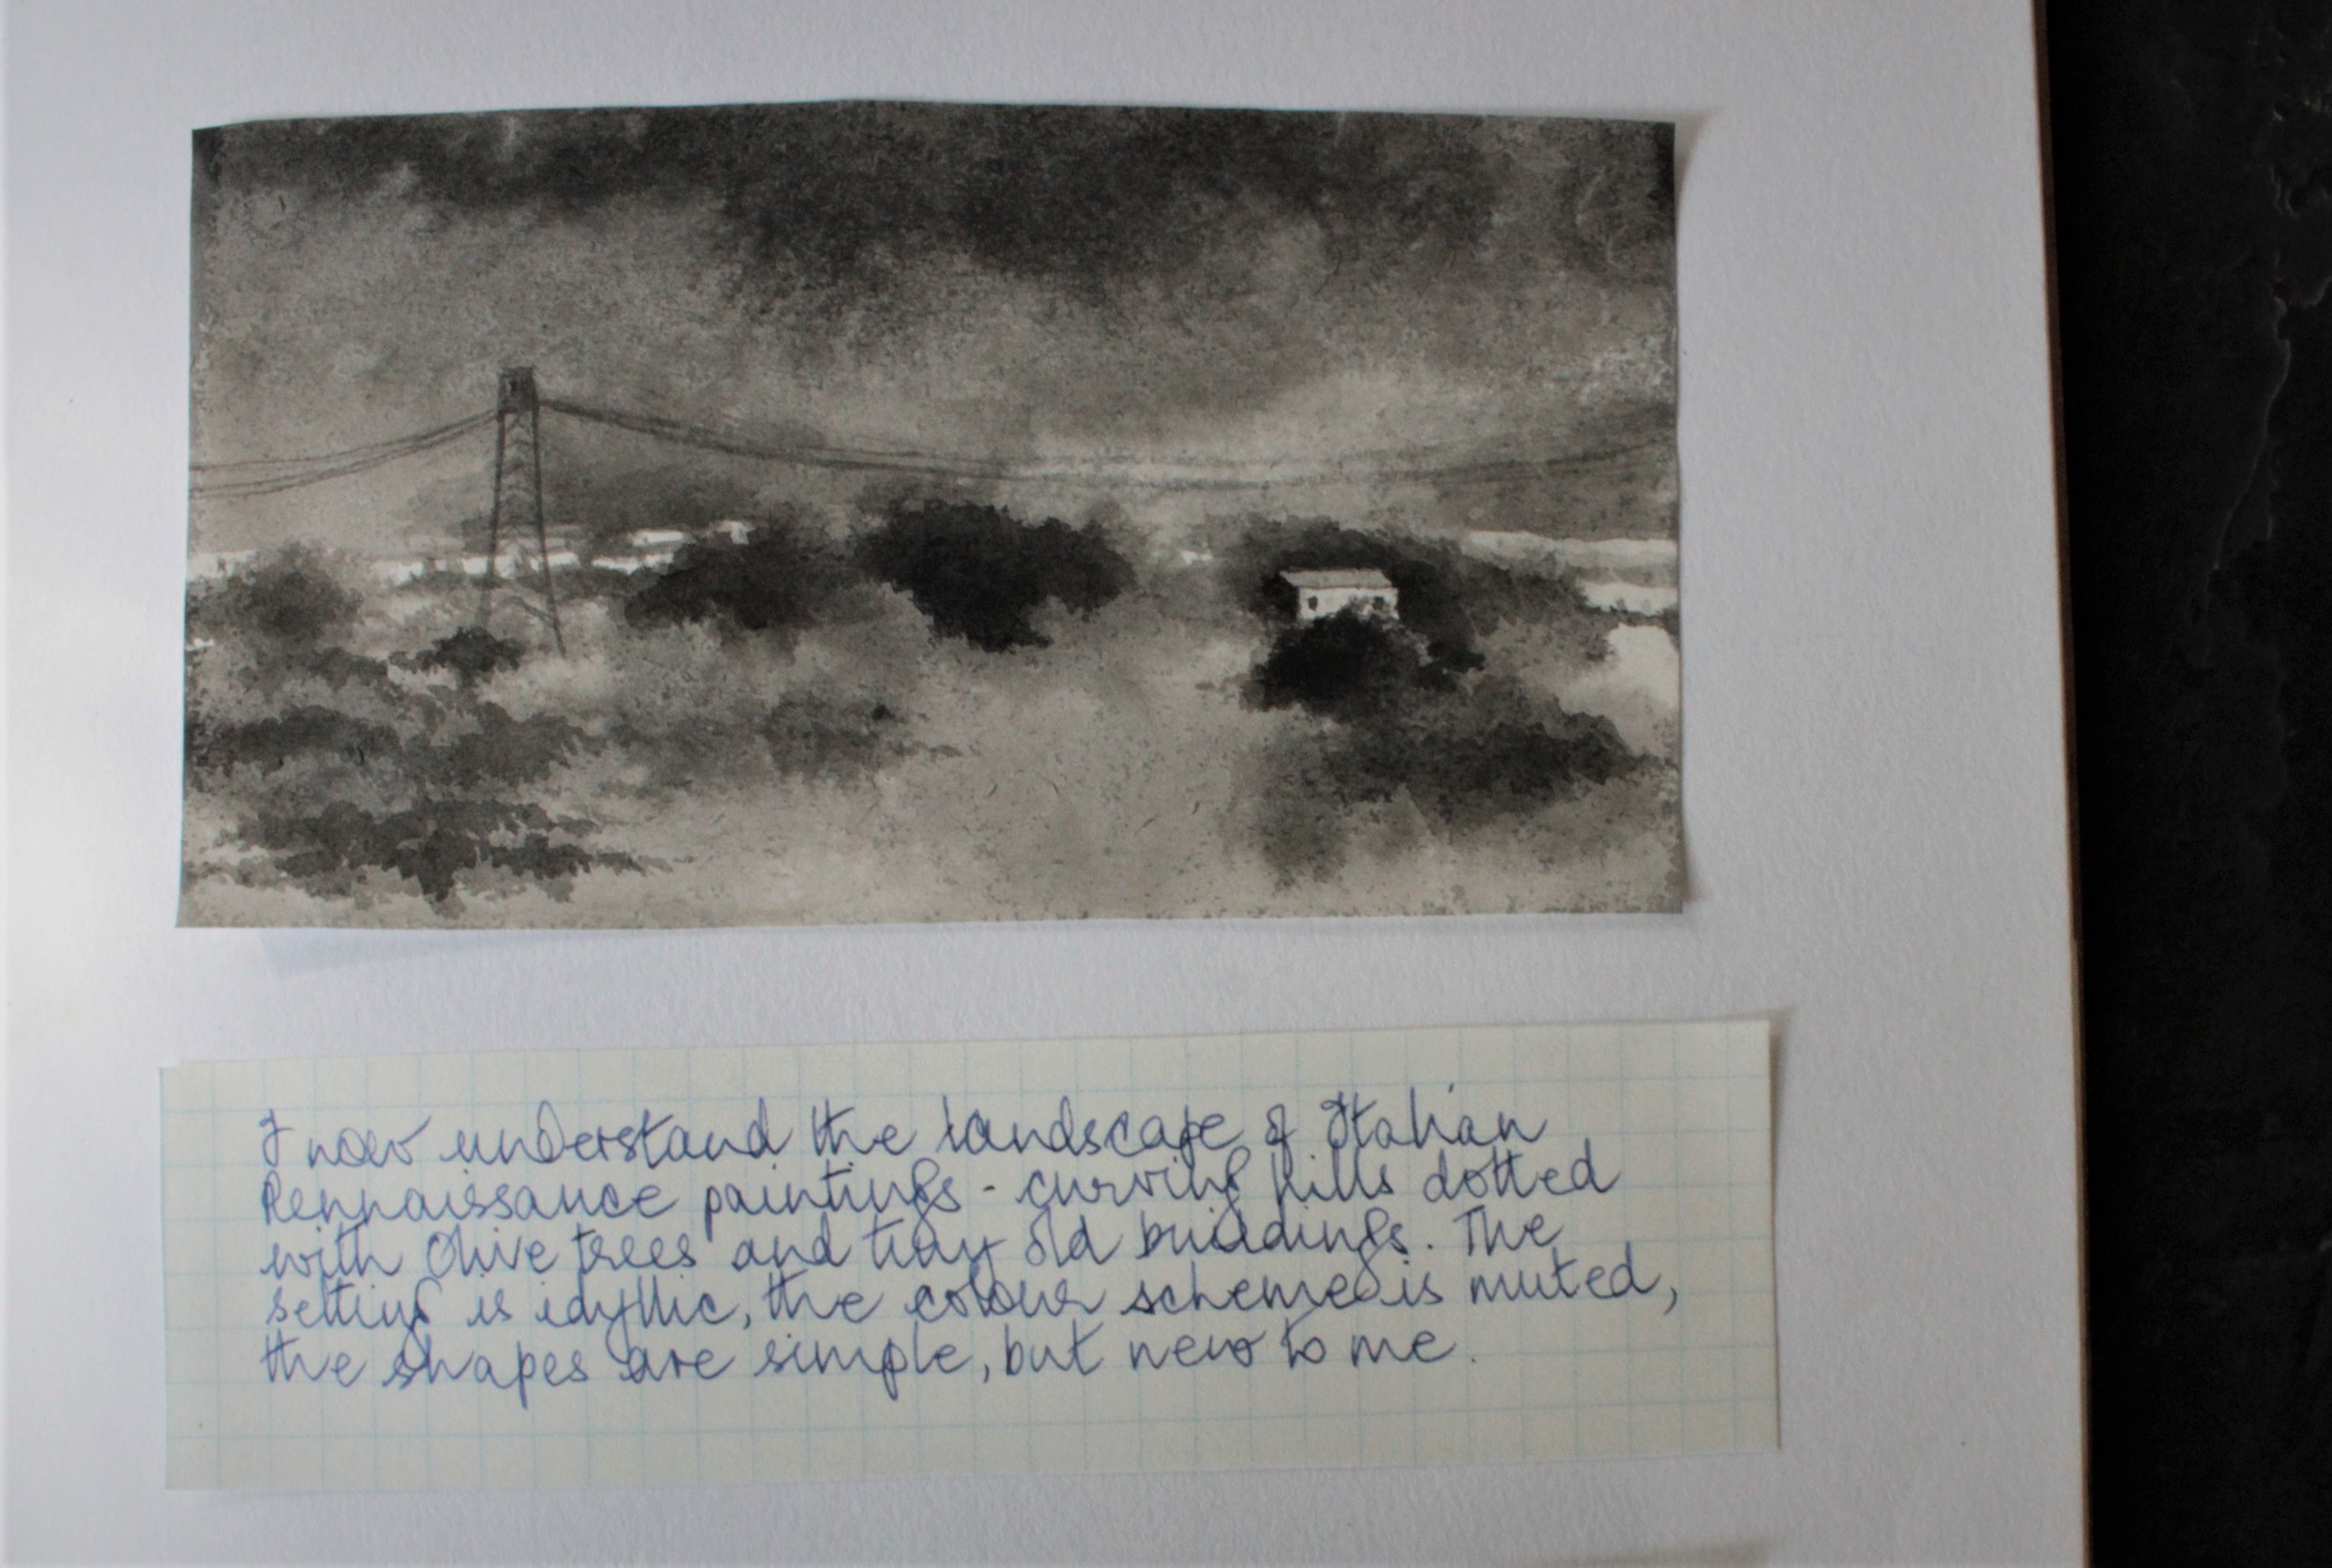 I now understand the landscape of Italian
Rennaissance paintings - curving hills dotted
with Olive trees and tiny old buildings. The
setting is idyllic, the colour scheme is muted,
the shapes are simple, but new to me.